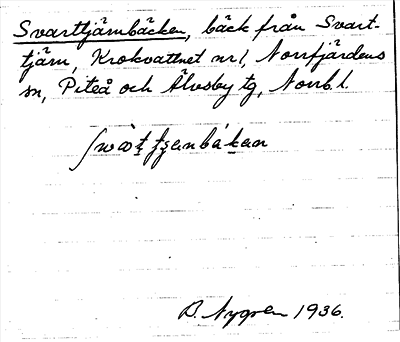 Svarttjärnbäcken, bäck från Svart-
tjärn, Krokvattnet nr 1, Norrfjärdens
sn, Piteå och Älvsby tg, Norrb. l.
B. Nygren 1936.